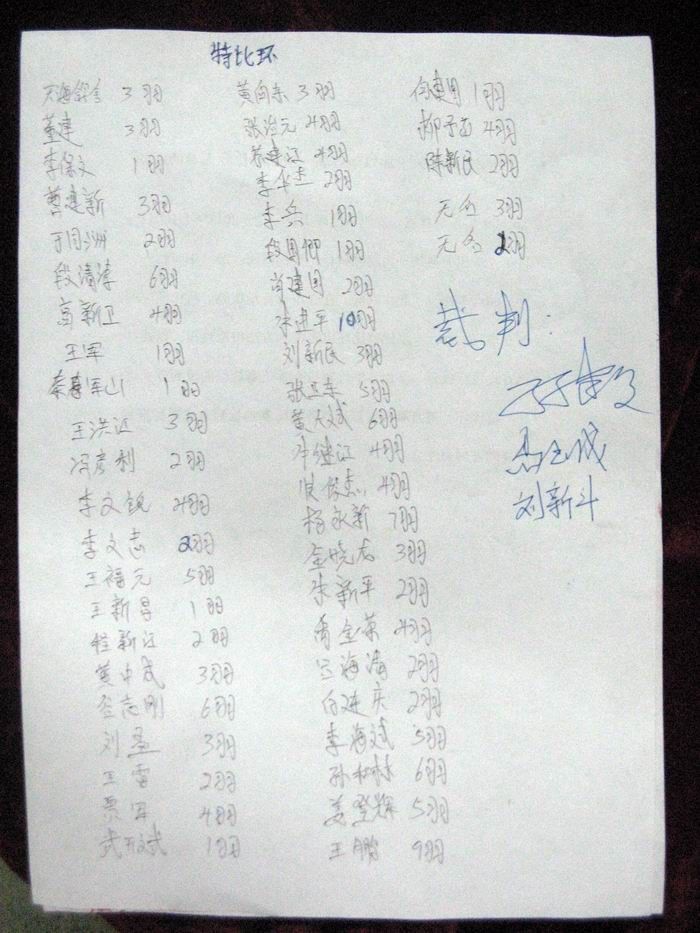 特比环
天海鸽舍 3羽
董建 3羽
李保文 1羽
曹建新 3羽
于同洲 2羽
段清涛 6羽
高新卫 4羽
王军 1羽
秦军山 1羽
王洪江 3羽
冯彦利 2羽
李文锐 4羽
李文志 2羽
王福元 5羽
王新昌 1羽
程新江 2羽
黄中成 3羽
志刚 6羽
刘磊 3羽
王雷 2羽
贾军 4羽
武斌 1羽
黄向东 3羽
张治元 4羽
苏建江 4羽
李华杰 2羽
李兵 1羽
段国卿 1羽
肖建国 2羽
朱建平 10羽
刘新民 3羽
张卫东 5羽
黄天斌 6羽
许继江 4羽
4羽
杨永新 7羽
金晓龙 3羽
朱新平 2羽
乔金荣 4羽
海涛 2羽
白建庆 2羽
李海斌 5羽
孙和林 6羽
姜登辉 5羽
王鹏 9羽
何建国 1羽
柳子雨 4羽
陈新民 2羽
无名 3羽
无名 2羽
裁判：
刘新斗